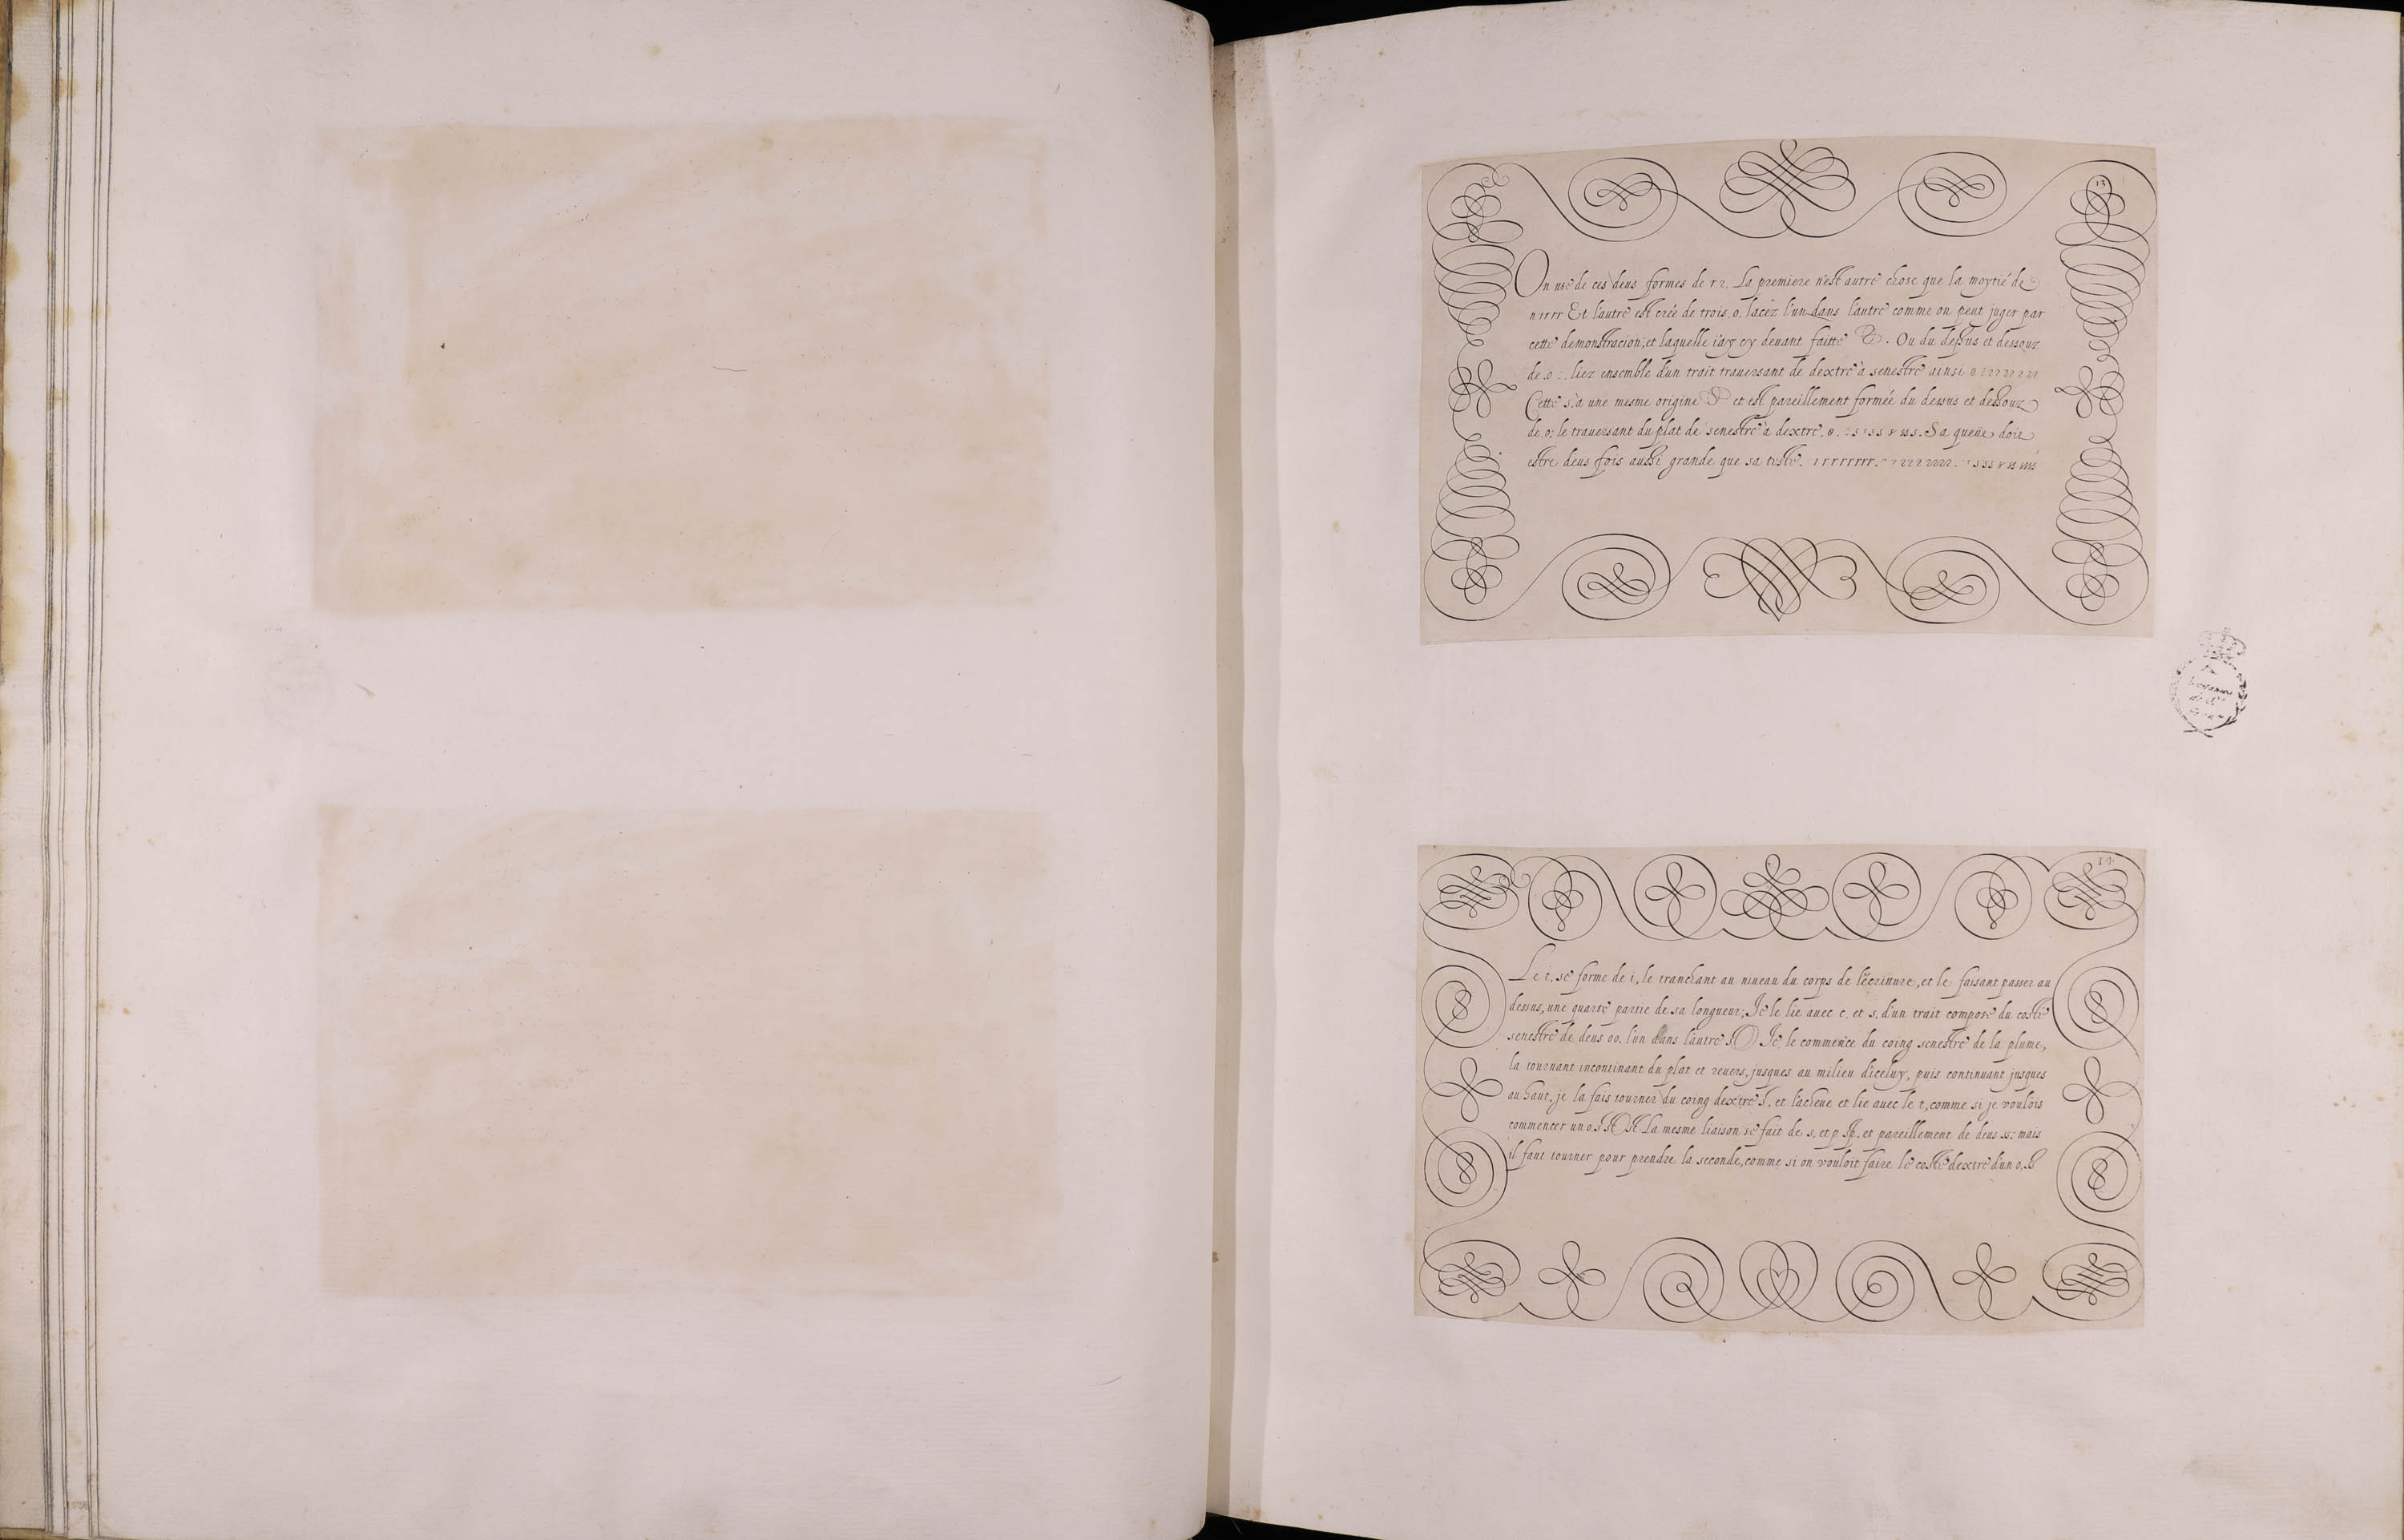 13
On use de ces deus formes de r.2. La premiere n'est autre chose que la moytié de
n ırrr Et l'autre est créé de trois. o. lacéz l'un dans l'autre comme on peut juger par
cette demonstracion, et laquelle i'ay cy devant faitte . Ou du dessus et dessouz
de .o liez ensemble d'un trait traversant de dextre à senestre ainsi 0 2 2 2 2 2 2 2
Cette s. a une mesme origine et est pareillement formée du dessus et dessouz
de .o: le traversant du plat de senestre à dextre. Sa queüe doit
estre deus fois aussi grande que sa teste.
14
Le t. se forme de i, le tranchant au niveau du corps de l'écriture, et le faisant passer au
dessus, une quarte partie de sa longueur; Je le lie avec c. et s. d'un trait composé du costé
senestre de deus oo. l'un dans l'autre Je. le commence du coing senestre de la plume,
la tournant incontinant du plat et revers, jusques au milieu d'iceluy, puis continuant jusques
au haut, je la fais tourner du coing dextre ſ, et l'acheve et lie avec le t, comme si je voulois
commencer un o. La mesme liaison se fait de s. et p ſp. et pareillement de deus ss: mais
il faut tourner pour prendre la seconde, comme si on vouloit faire le costé dextre d'un o.